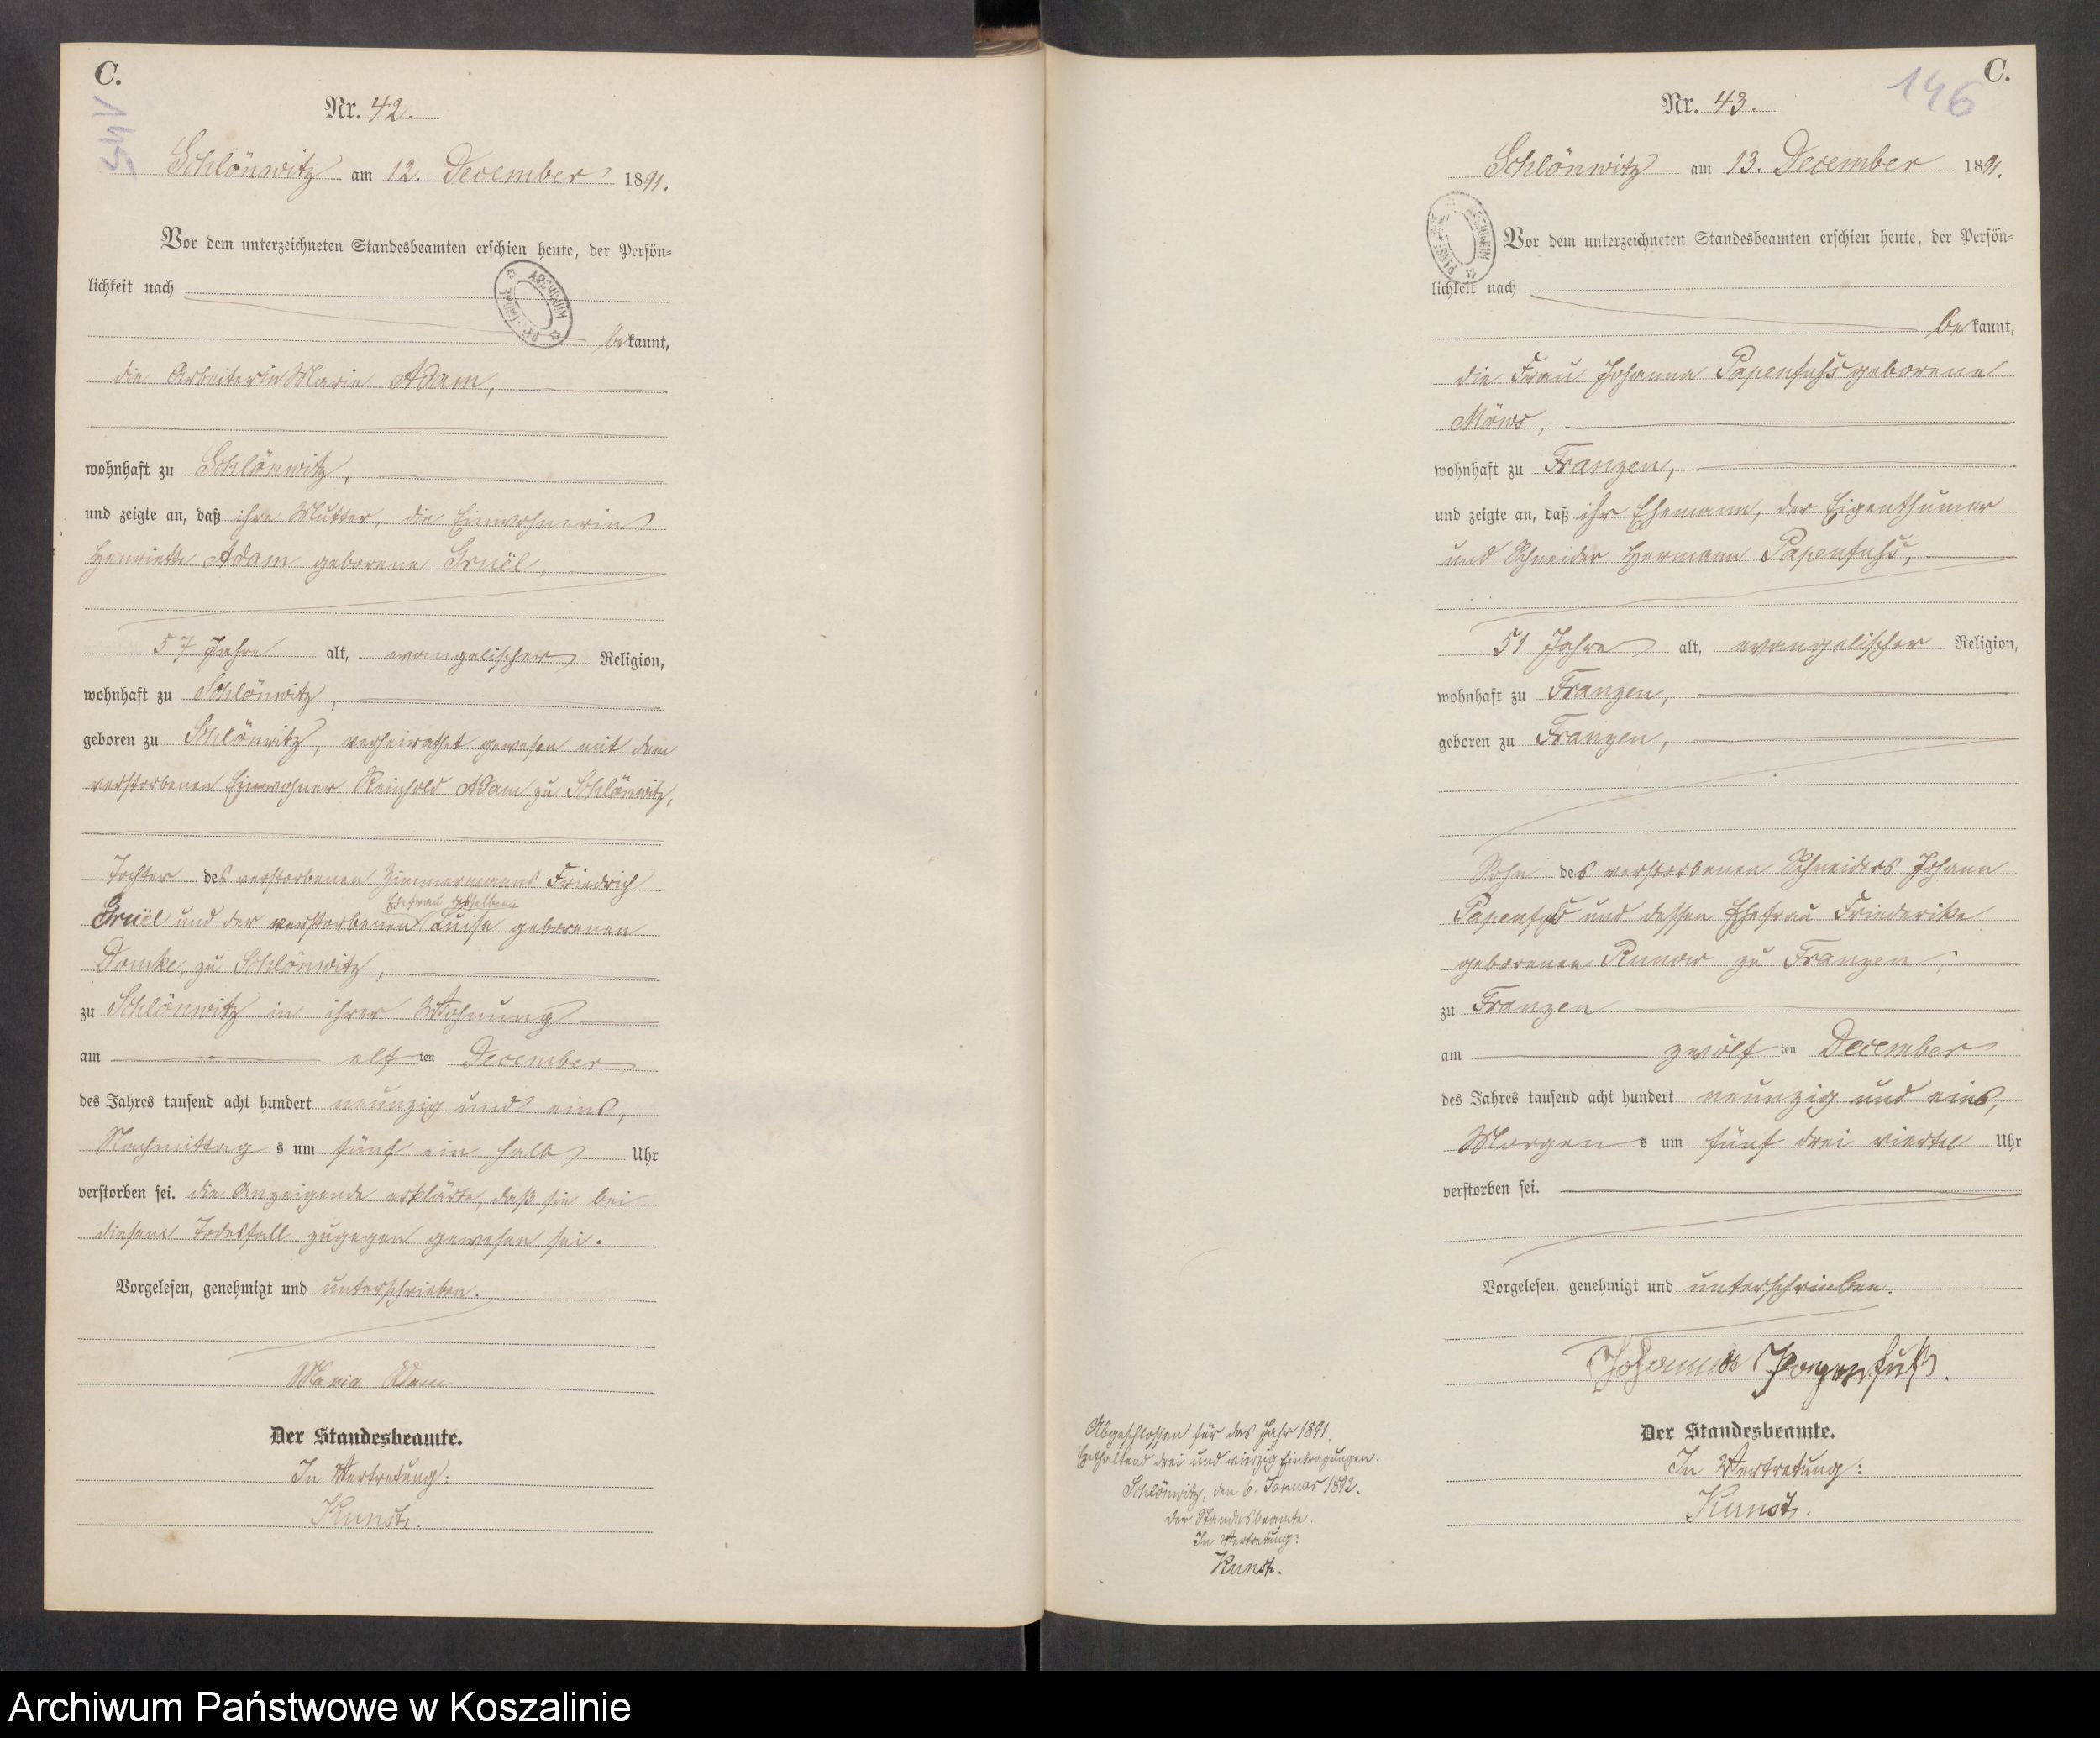 C.
145
Nr. 42.
Schlönwitz am 12. December 1891.
Vor dem unterzeichneten Standesbeamten erschien heute, der Persön=
lichkeit nach
bekannt,
die Arbeiterin Marie Adam,
wohnhaft zu Schlönwitz,
und zeigte an, daß ihre Mutter, die Einwohnerin
Henriette Adam geborene Gruël,
57 Jahre alt, evangelischer Religion,
wohnhaft zu Schlönwitz,
geboren zu Schlönwitz, verheirathet gewesen mit dem
verstorbenen Einwohner Reinhold Adam zu Schlönwitz,
Tochter des verstorbenen Zimmermanns Friedrich
Ehefrau desselben
Gruël und der verstorbenen Luise geborenen
Domke, zu Schlönwitz,
zu Schlönwitz in ihrer Wohnung
am elften December
des Jahres tausend acht hundert neunzig und eins,
Nachmittags um fünf ein halb Uhr
verstorben sei. die Anzeigende erklärte, daß sie bei
diesem Todesfall zugegen gewesen sei.
Vorgelesen, genehmigt und unterschrieben.
Marie Adam
Der Standesbeamte.
In Vertretung:
Kunst.
C.
146
Nr. 43.
Schlönwitz am 13. December 1891.
Vor dem unterzeichneten Standesbeamten erschien heute, der Persön=
lichkeit nach
bekannt,
die Frau Johanna Papenfuhs geborene
Möws,
wohnhaft zu Franzen,
und zeigte an, daß ihr Ehemann, der Eigenthümer
und Schneider Hermann Papenfuhs,
51 Jahre alt, evangelischer Religion,
wohnhaft zu Franzen,
geboren zu Franzen,
Sohn des verstorbenen Schneiders Johann
Papenfuhs und dessen Ehefrau Friederike
geborenen Runow zu Franzen,
zu Franzen
am zwölften December
des Jahres tausend acht hundert neunzig und eins,
Morgens um fünf drei viertel Uhr
verstorben sei.
Vorgelesen, genehmigt und unterschrieben.
Johanna Papenfuhs.
Der Standesbeamte.
In Vertretung:
Kunst.
Abgeschlossen für das Jahr 1891.
Enthaltend drei und vierzig Eintragungen.
Schlönwitz, den 6. Januar 1892.
Der Standesbeamte.
In Vertretung:
Kunst.
Archiwum Państwowe w Koszalinie